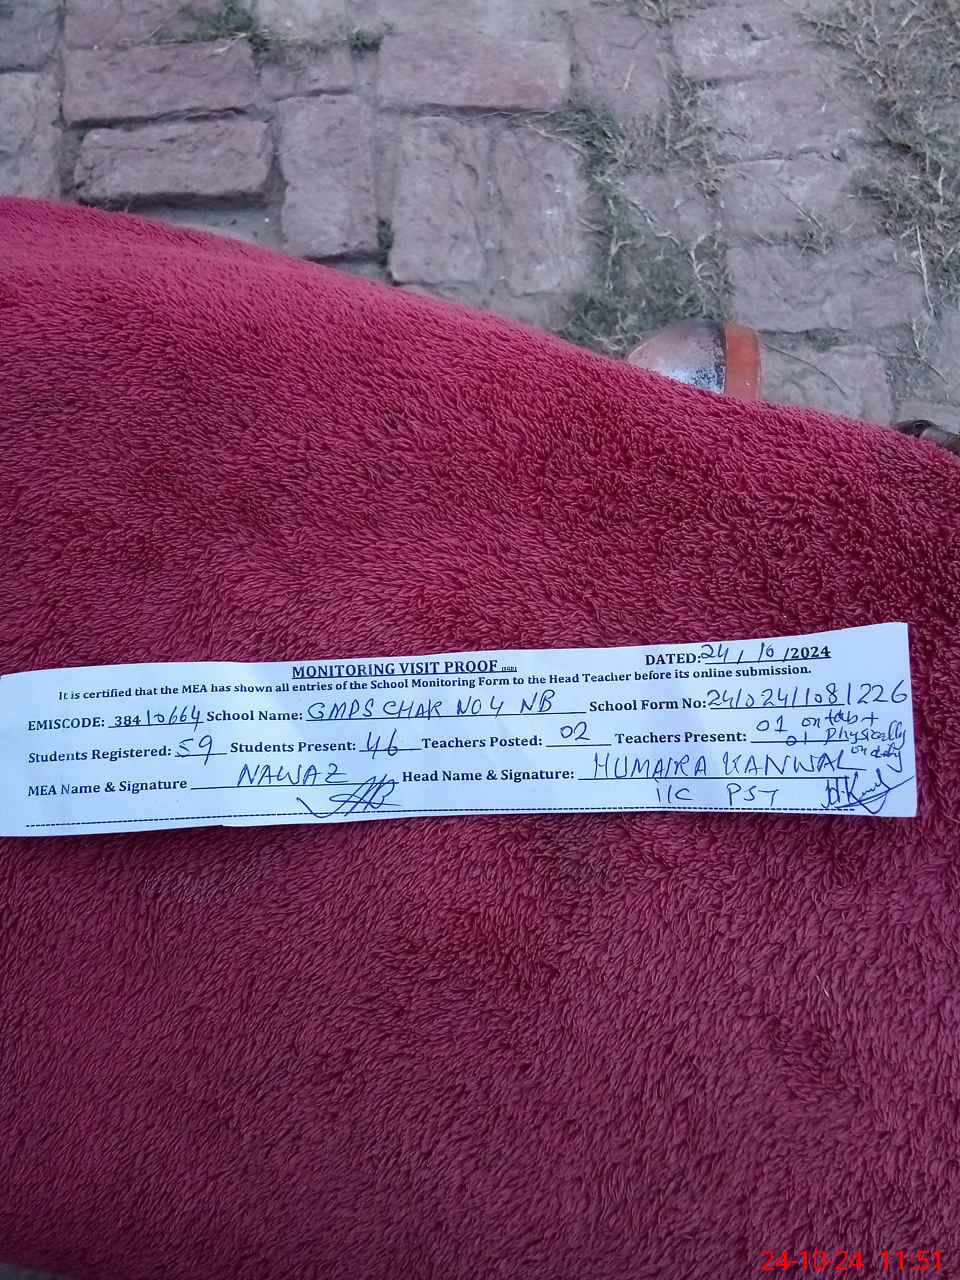 MONITORING VISIT PROOF
DATED: 24 / 10 /2024
It is certified that the MEA has shown all entries of the School Monitoring Form to the Head Teacher before its online submission.
EMISCODE: 38410664 School Name: GMPS CHAK NO 4 NB School Form No: 24102411081226
Students Registered: 59 Students Present: 46 Teachers Posted: 02 Teachers Present: 01 on tab +
01 Physically
on duty
MEA Name & Signature NAWAZ Head Name & Signature: HUMAIRA KANWAL
I/C PST
24-10-24 11:51